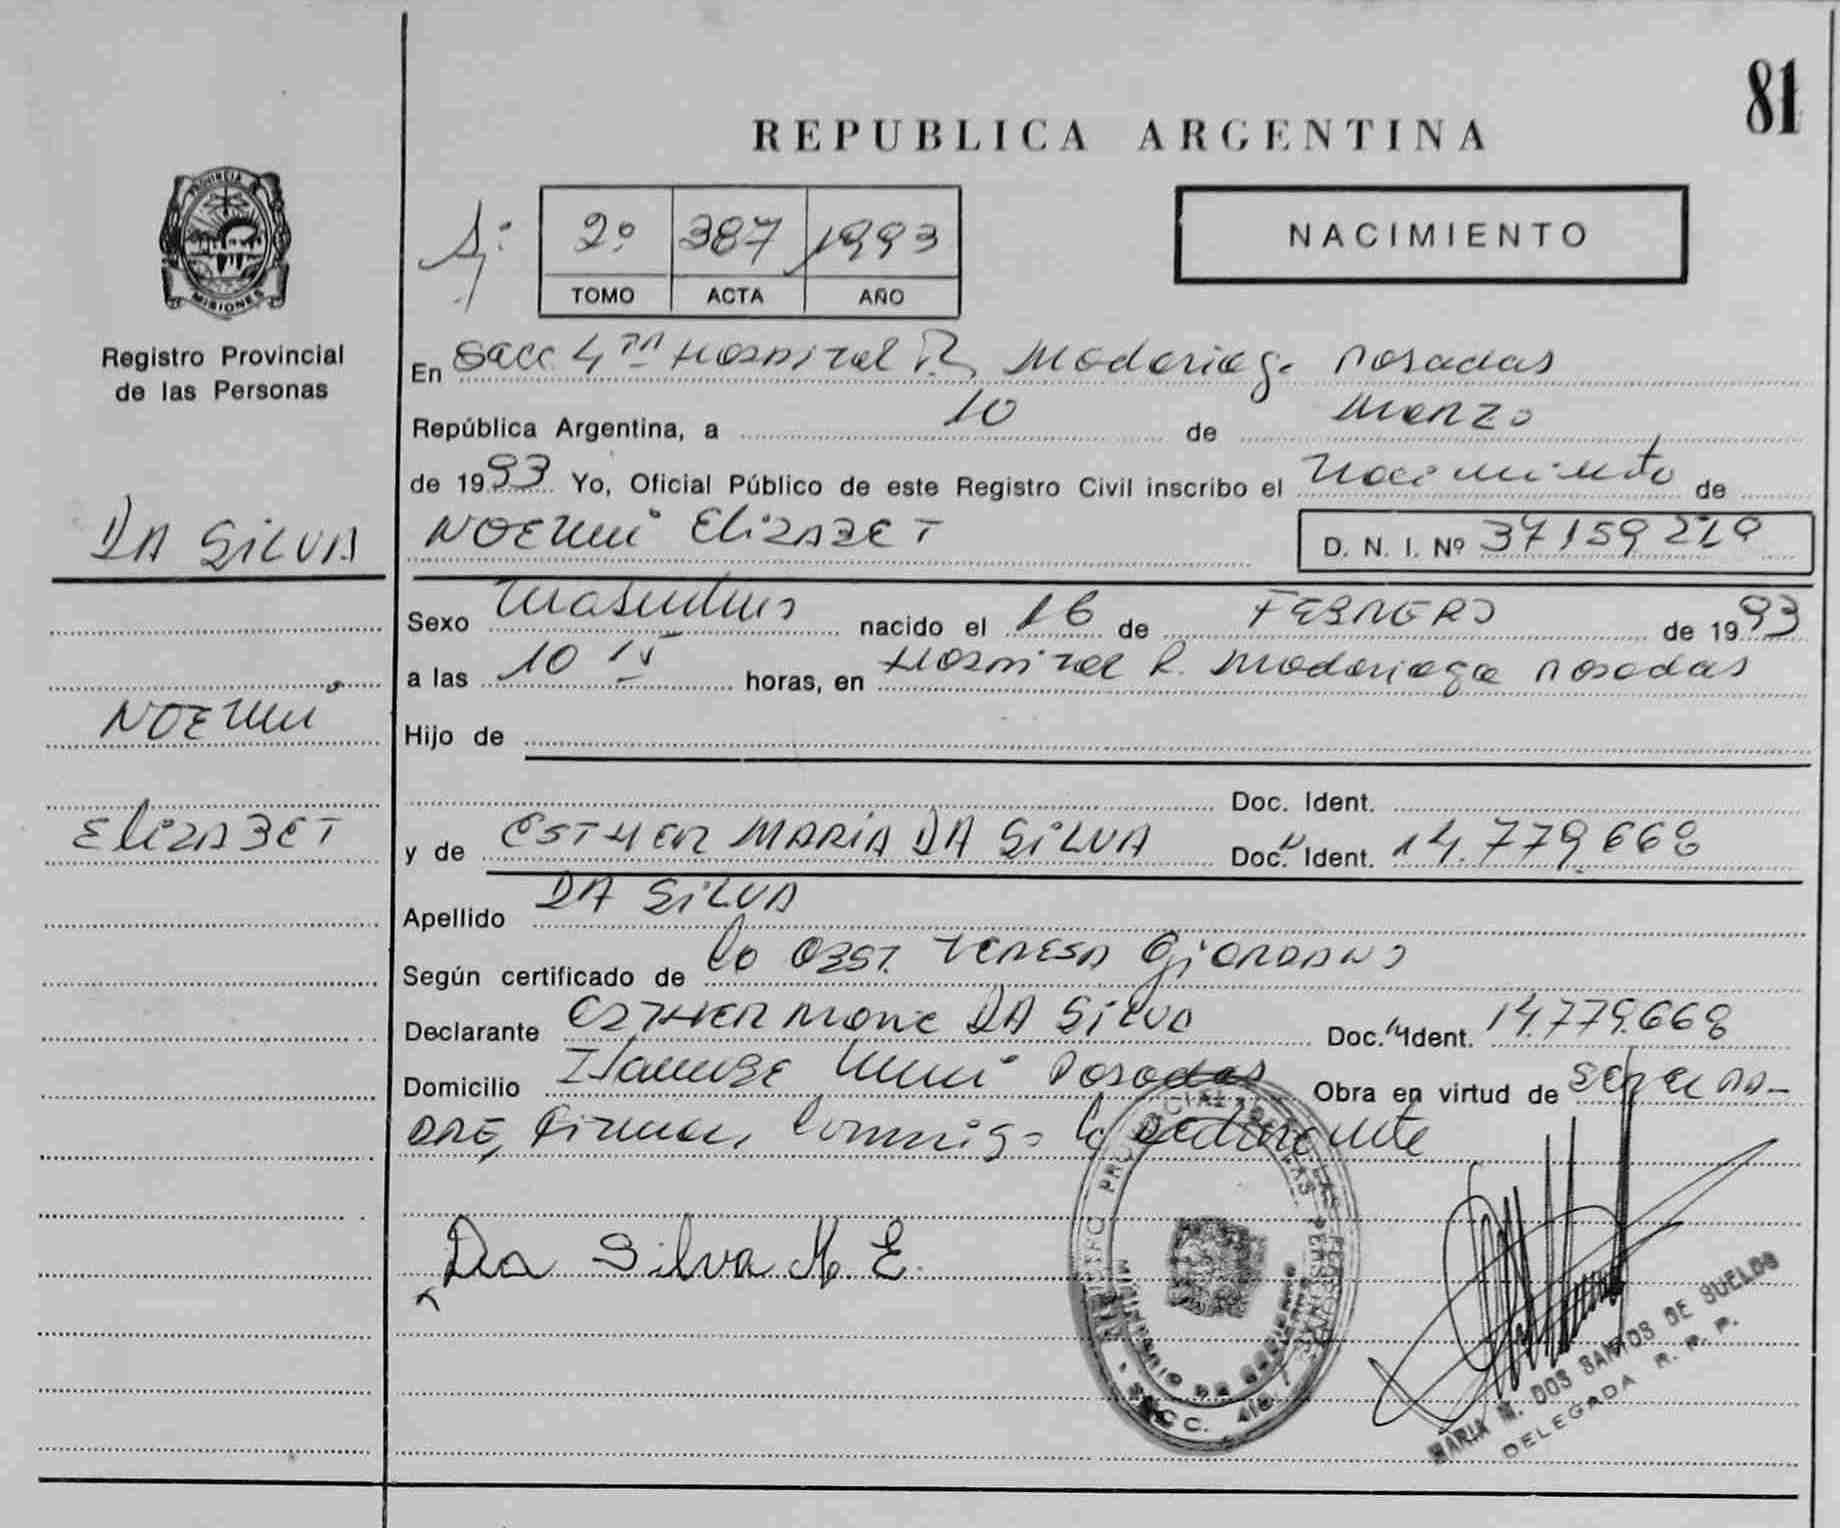 81
REPUBLICA ARGENTINA
PROVINCIA DE
MISIONES
Registro Provincial
de las Personas
2º 387 1993
TOMO ACTA AÑO
NACIMIENTO
En Secc 4ta Hospital R. Madariaga Posadas
República Argentina, a 10 de Marzo
de 1993 Yo, Oficial Público de este Registro Civil inscribo el nacimiento de
DA SILVA
NOEMI ELIZABET D. N. I. Nº 37159219
Sexo Masculino nacido el 16 de FEBRERO de 1993
a las 10 15 horas, en Hospital R. Madariaga Posadas
NOEMI
Hijo de
Doc. Ident.
ELIZABET
y de ESTHER MARIA DA SILVA Doc. Ident. 14.779.668
Apellido DA SILVA
Según certificado de la OBST. TERESA GIORDANO
Declarante ESTHER Maria DA SILVA Doc. Ident. 14.779.668
Domicilio Posadas Obra en virtud de SER EL PA-
DRE, Firma, Conmigo la declarante
Da Silva M. E.
REGISTRO PROVINCIAL DE LAS PERSONAS
MINISTERIO DE GOBIERNO
SECC. 4ta.
MARIA M. DOS SANTOS DE SUELDO
DELEGADA R. P. P.